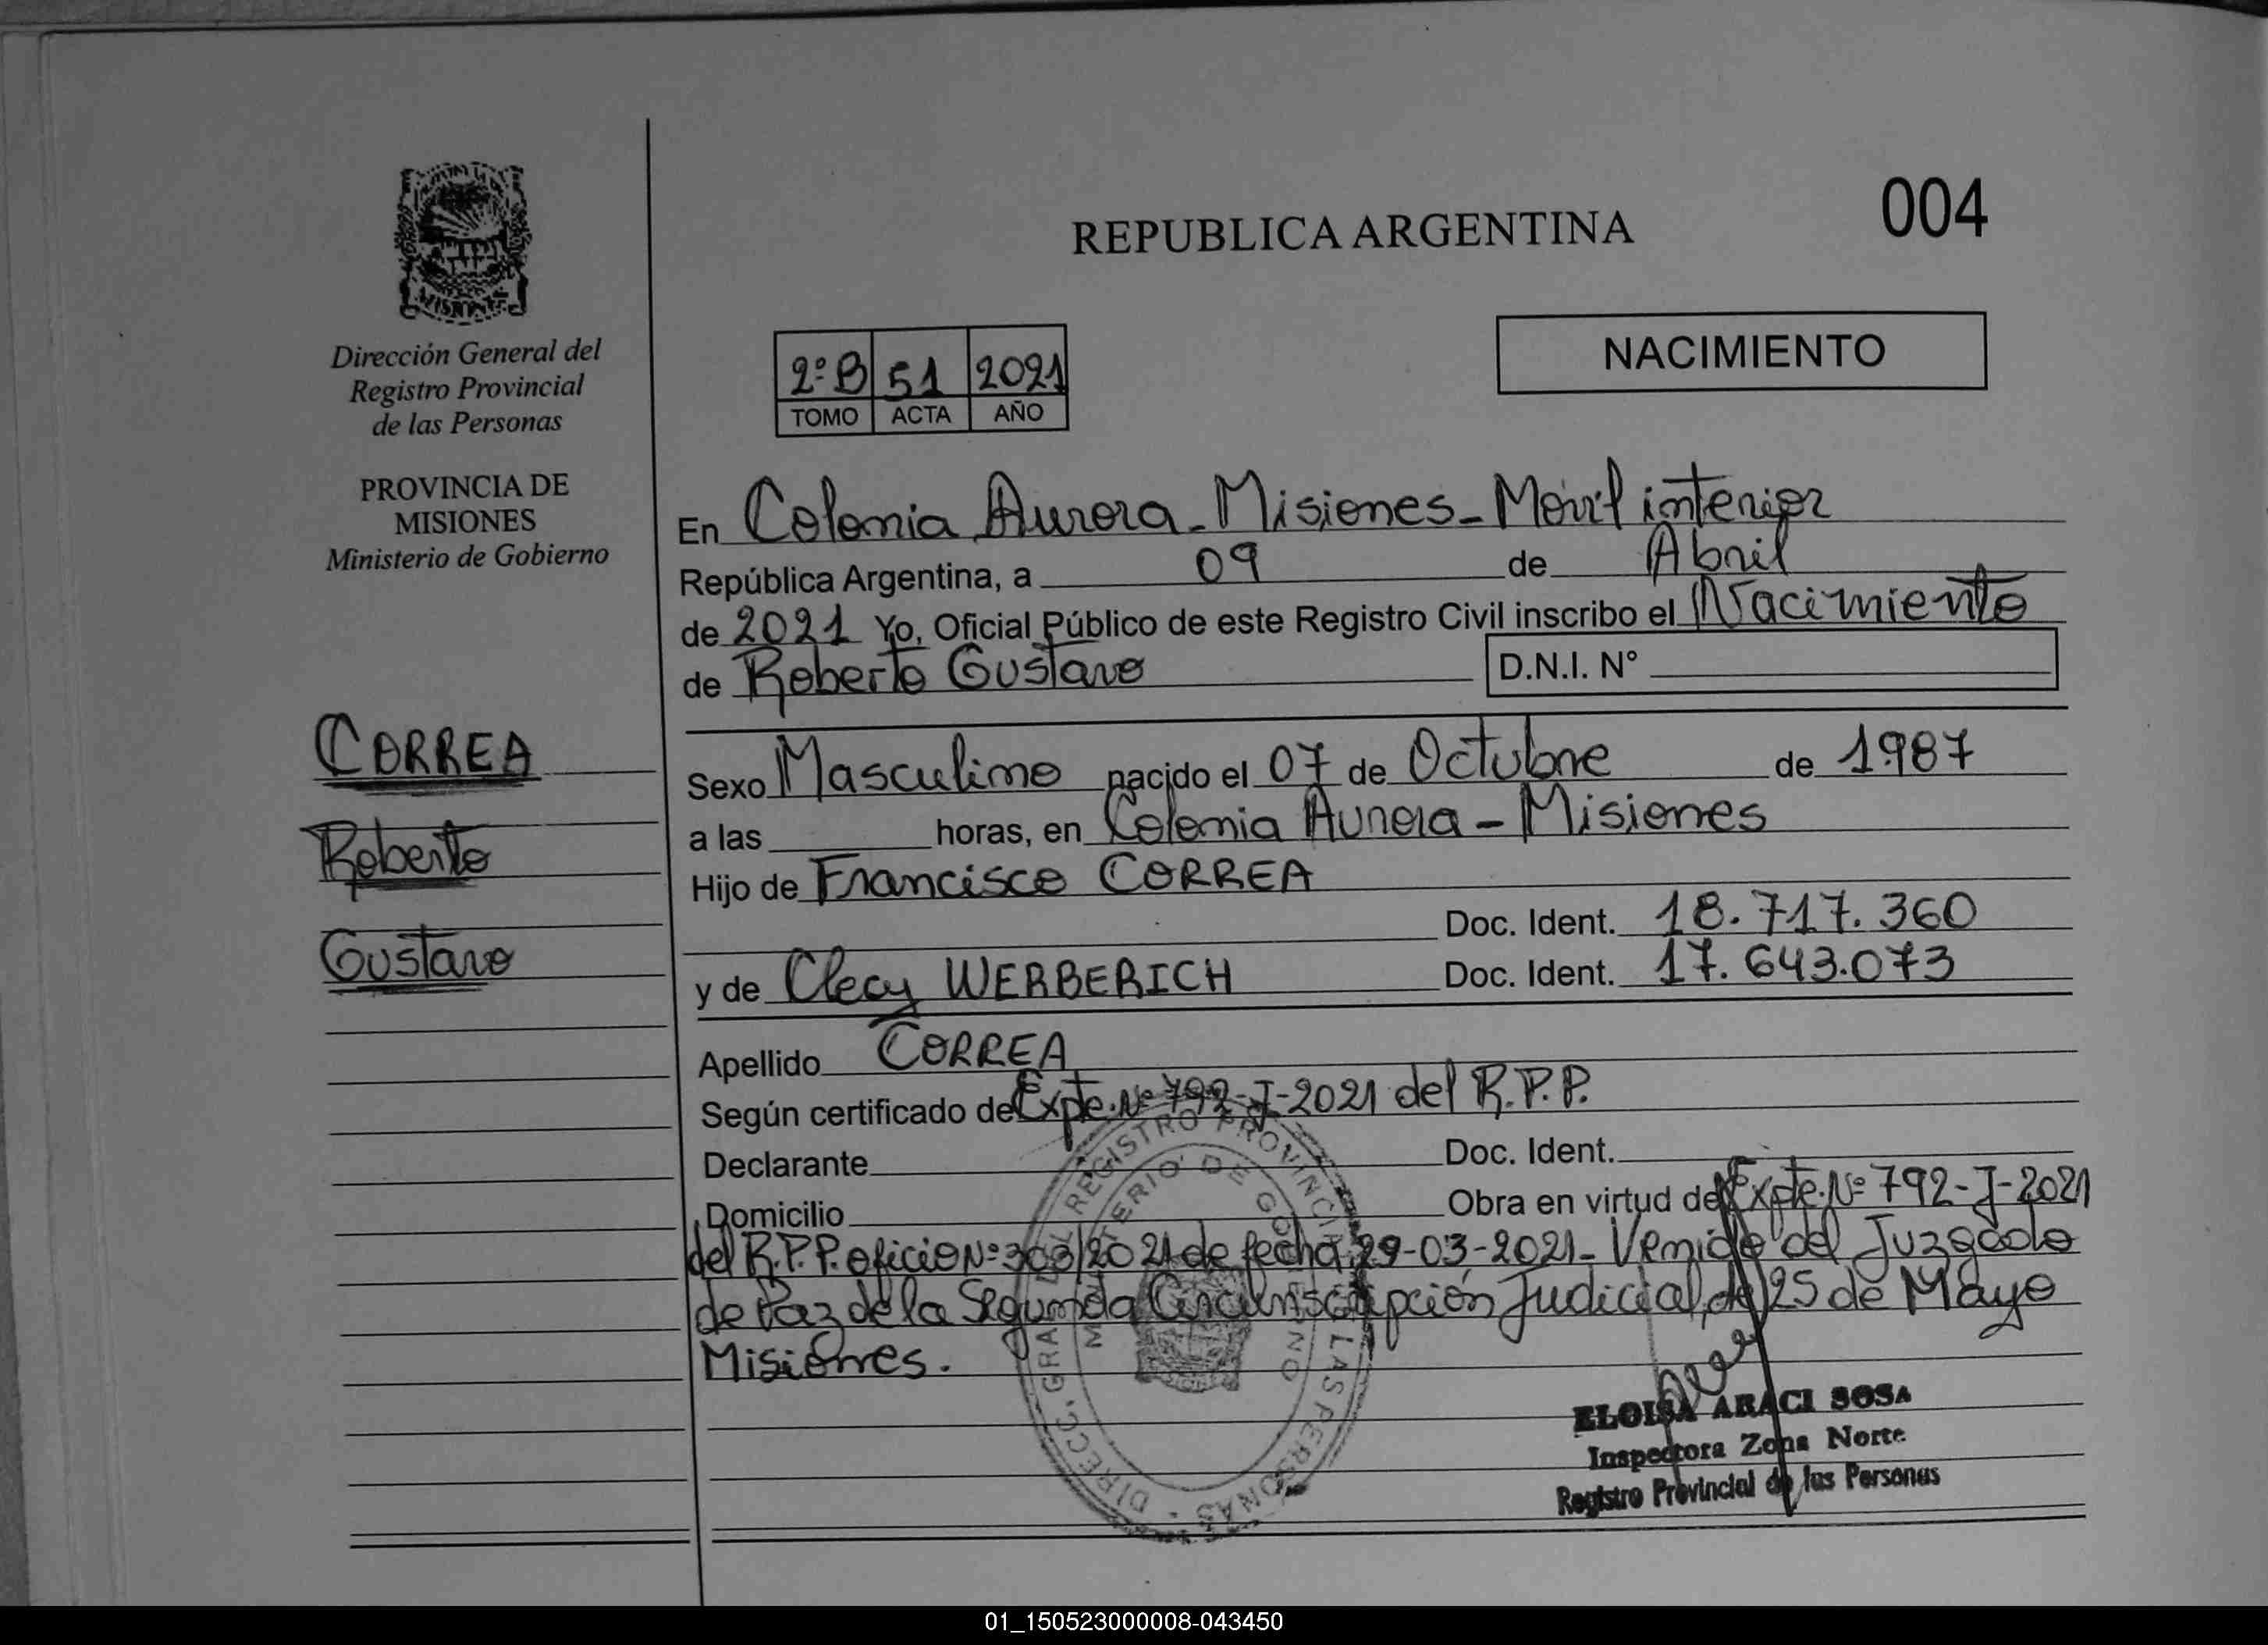 MISIONES
Dirección General del
Registro Provincial
de las Personas
PROVINCIA DE
MISIONES
Ministerio de Gobierno
CORREA
Roberto
Gustavo
REPUBLICA ARGENTINA
004
NACIMIENTO
2º B 51 2021
TOMO ACTA AÑO
En Colonia Aurora - Misiones - Móvil interior
República Argentina, a 09 de Abril
de 2021 Yo, Oficial Público de este Registro Civil inscribo el Nacimiento
de Roberto Gustavo D.N.I. Nº
Sexo Masculino nacido el 07 de Octubre de 1987
a las horas, en Colonia Aurora - Misiones
Hijo de Francisco CORREA
Doc. Ident. 18.717.360
y de Clecy WERBERICH Doc. Ident. 17.643.073
Apellido CORREA
Según certificado de Expte. Nº 792-J-2021 del R.P.P.
Declarante Doc. Ident.
Domicilio Obra en virtud de Expte. Nº 792-J-2021
del R.P.P. oficio Nº 303/2021 de fecha 29-03-2021- Venido del Juzgado
de Paz de la Segunda Circunscripción Judicial, de 25 de Mayo
Misiones.
DIRECC. GRAL. REGISTRO PROVINCIAL LAS PERSONAS
MINISTERIO DE GOBIERNO
ELOISA ARACI SOSA
Inspectora Zona Norte
Registro Provincial de las Personas
01_150523000008-043450